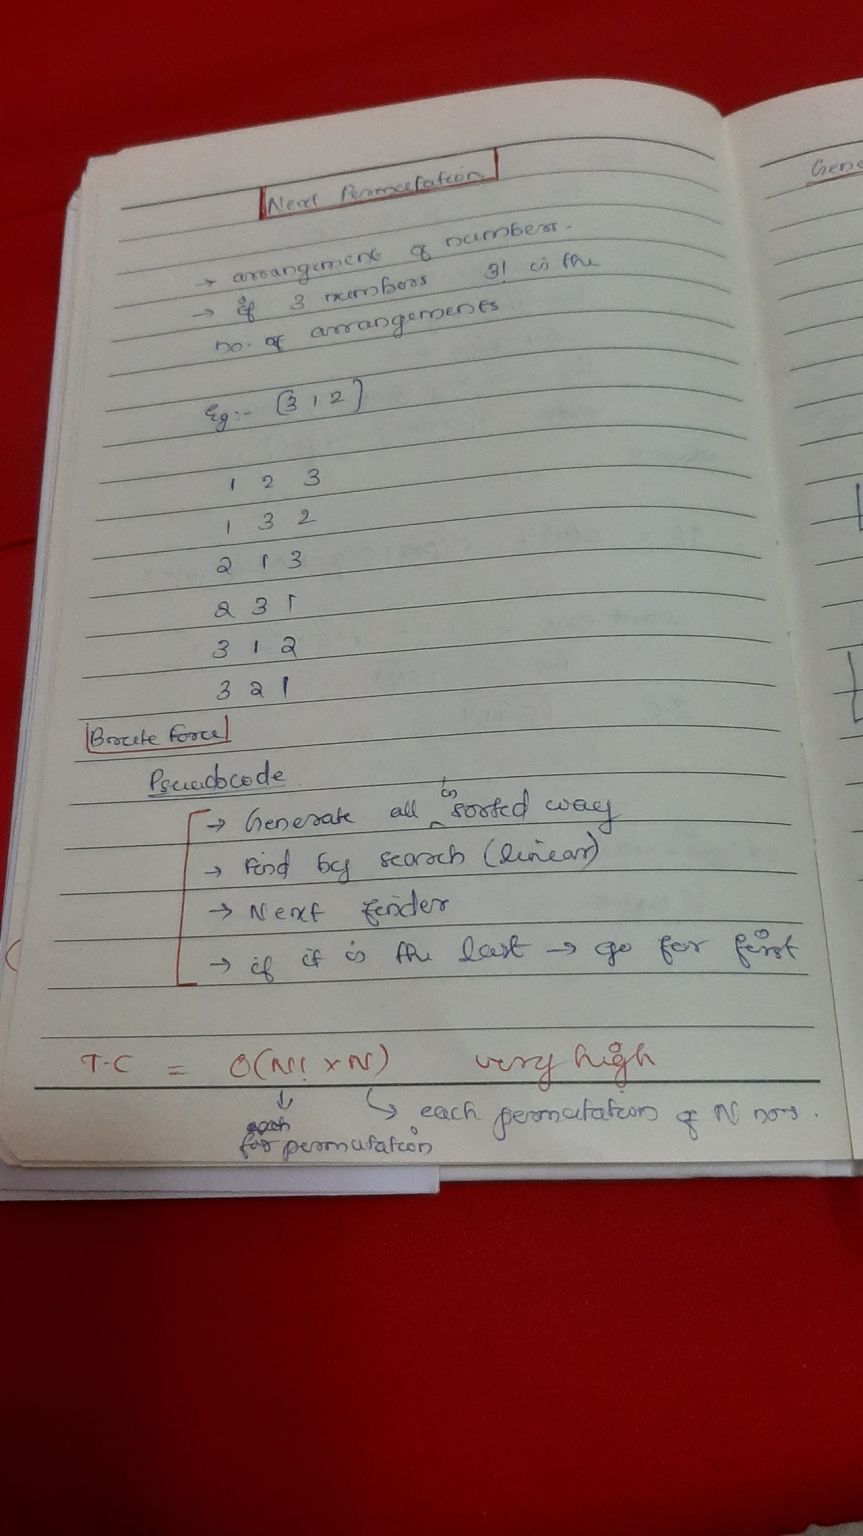 Next Permutation
→ arrangement of numbers.
→ if 3 numbers 3! is the
no. of arrangements.
Eg:- [3 1 2]
1 2 3
1 3 2
2 1 3
2 3 1
3 1 2
3 2 1
Brute Force
Pseudocode
→ Generate all in sorted way
→ Find by search (linear)
→ Next finder
→ if it is the last → go for first
T.C = O(N! × N) very high
↓ ↳ each permutation of N nos.
for permutation
Gene